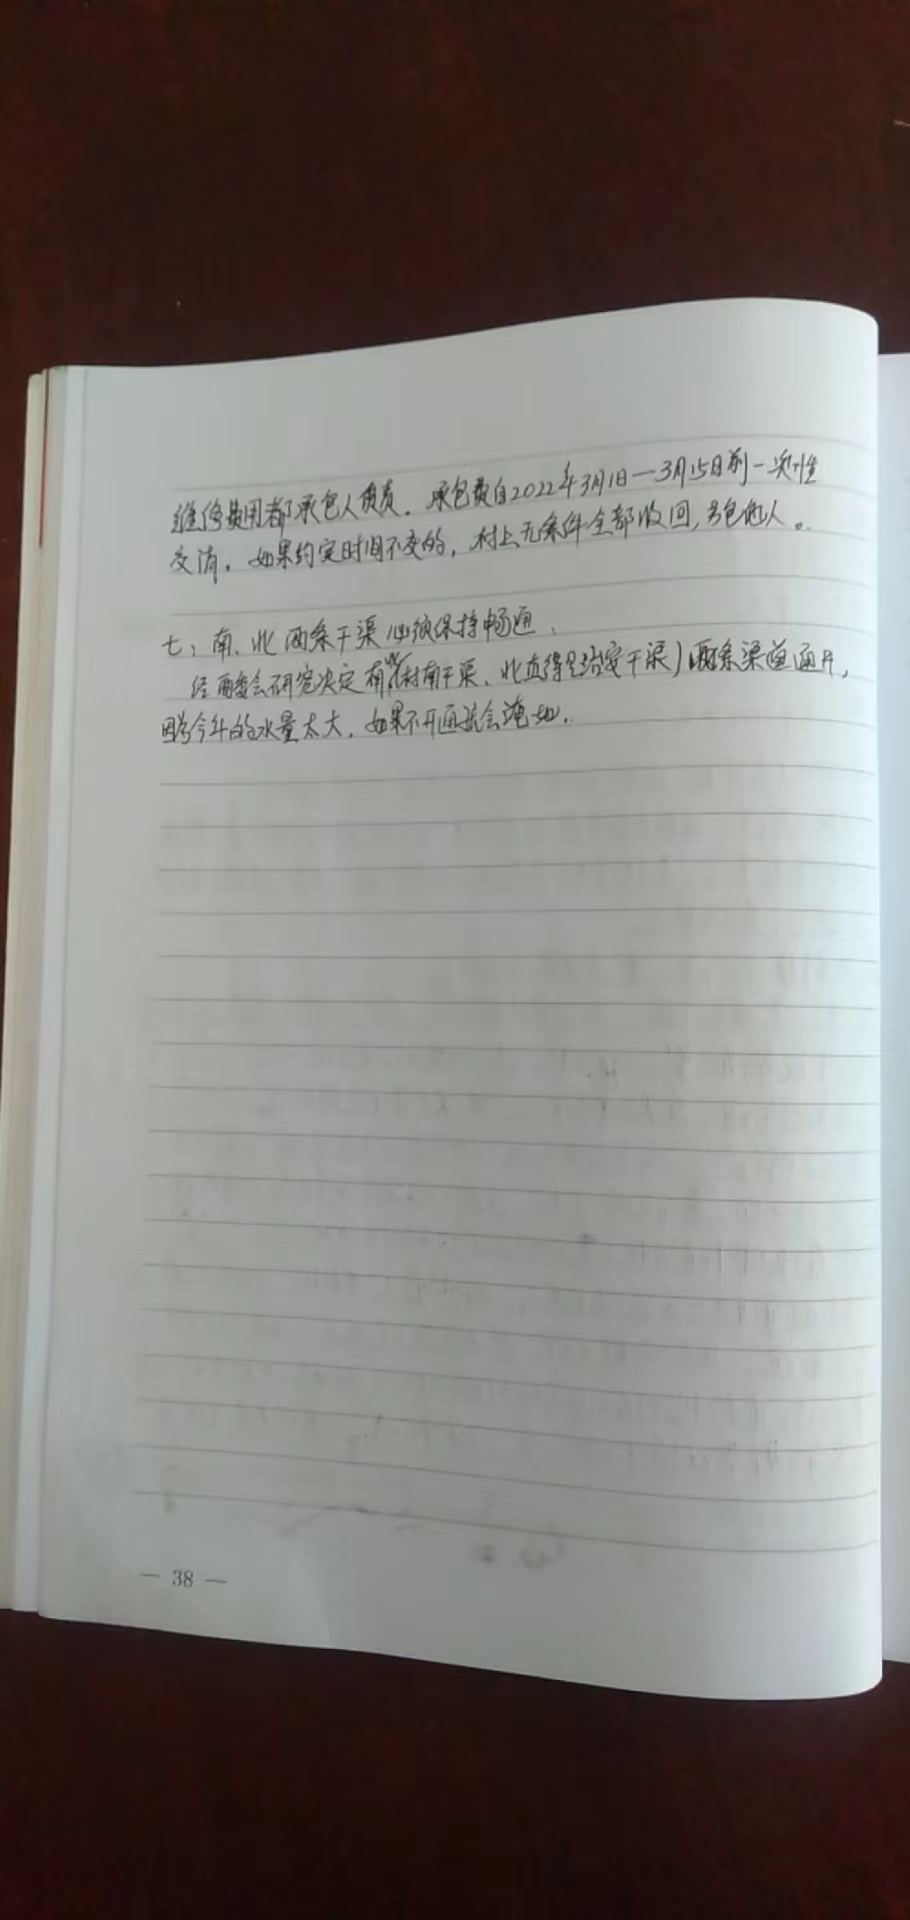 维修费用都承包人负责。承包费自2022年3月1日—3月15日前一次性
交清。如果约定时间不交的，村上无条件全部收回，另包他人。
七：南、北两条干渠必须保持畅通、
经两委会研究决定有村南干渠、北直干渠）两条渠道通开，
因为今年的水量太大，如果不开通就会淹地。
— 38 —